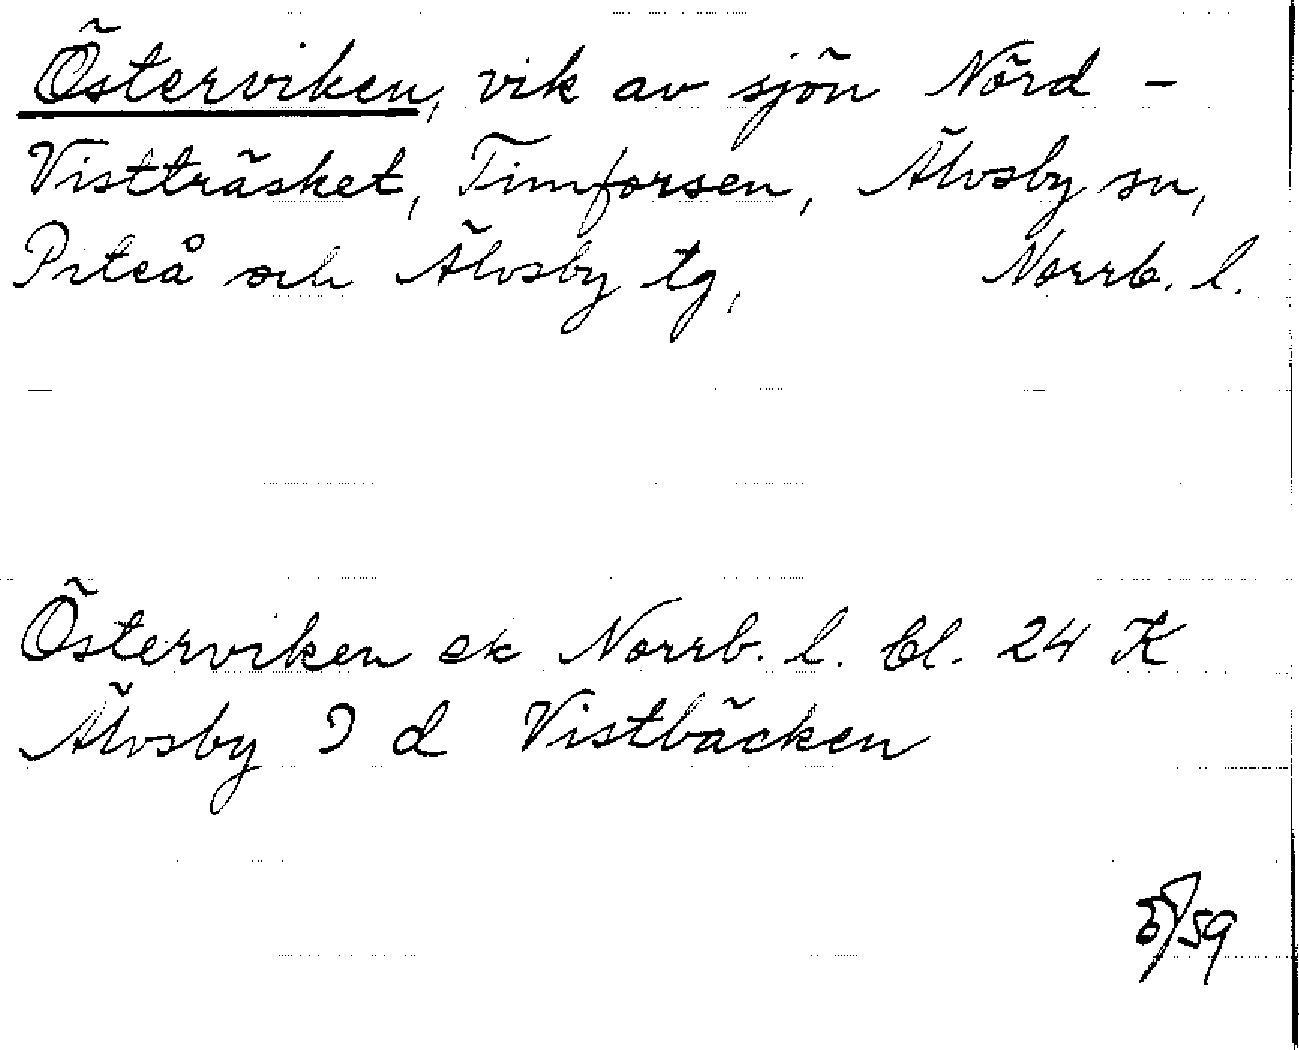 Österviken, vik av sjön Nörd-
Vistträsket, Timforsen, Älvsby sn,
Piteå och Älvsby tg, Norrb. l.
Österviken ek Norrb. l. bl. 24 K
Älvsby I d Vistbäcken
/59